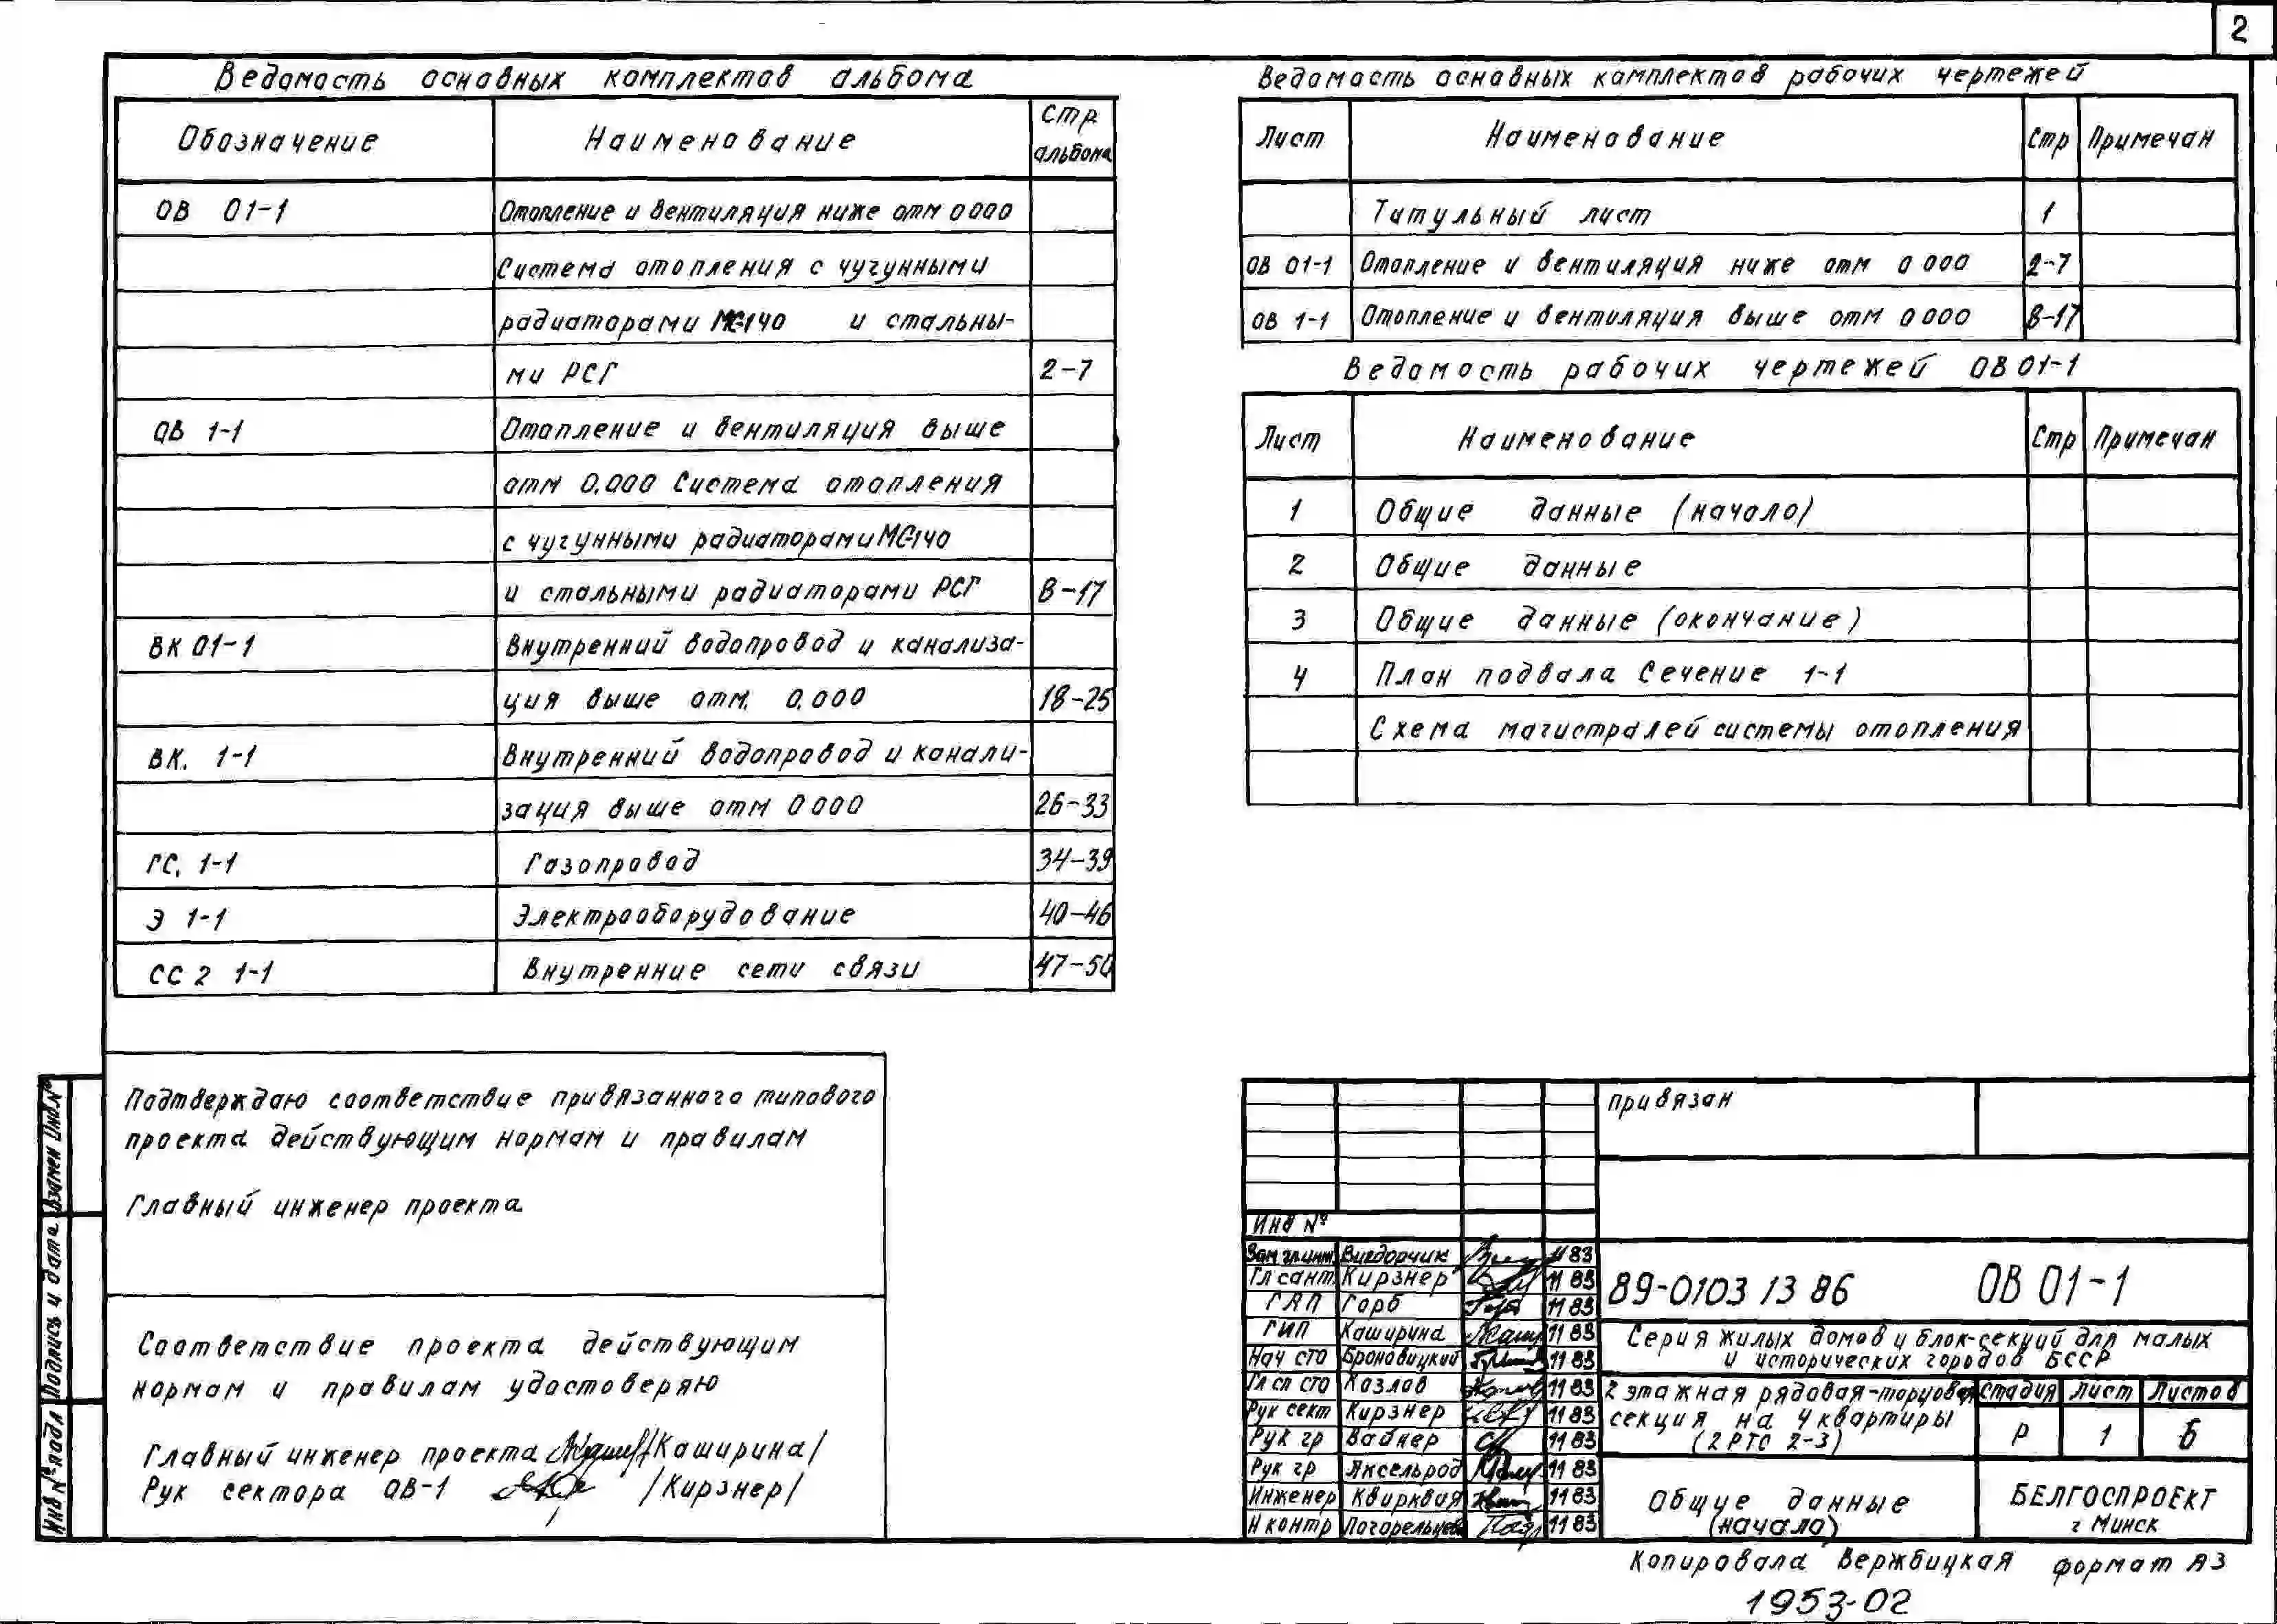 2
Ведомость основных комплектов альбома
Обозначение Наименование Стр альбома
ОВ 01-1 Отопление и вентиляция ниже отм 0 000
Система отопления с чугунными
радиаторами МС-140 и стальны-
ми РСГ 2-7
ОВ 1-1 Отопление и вентиляция выше
отм 0.000 Система отопления
с чугунными радиаторами МС-140
и стальными радиаторами РСГ 8-17
ВК 01-1 Внутренний водопровод и канализа-
ция выше отм. 0.000 18-25
ВК. 1-1 Внутренний водопровод и канали-
зация выше отм 0 000 26-33
ГС. 1-1 Газопровод 34-39
Э 1-1 Электрооборудование 40-46
СС 2 1-1 Внутренние сети связи 47-50
Ведомость основных комплектов рабочих чертежей
Лист Наименование Стр Примечан
Титульный лист 1
ОВ 01-1 Отопление и вентиляция ниже отм 0 000 2-7
ОВ 1-1 Отопление и вентиляция выше отм 0 000 8-17
Ведомость рабочих чертежей ОВ 01-1
Лист Наименование Стр Примечан
1 Общие данные (начало)
2 Общие данные
3 Общие данные (окончание)
4 План подвала Сечение 1-1
Схема магистралей системы отопления
Подтверждаю соответствие привязанного типового
проекта действующим нормам и правилам
Главный инженер проекта
Соответствие проекта действующим
нормам и правилам удостоверяю
Главный инженер проекта /Каширина/
Рук сектора ОВ-1 /Кирзнер/
Взамен Инв.№
Подпись и дата
Инв № подл
привязан
Инв №
Зам гл инж. Вигдорчик 11 83
Гл сант. Кирзнер 11 83
ГАП Горб 11 83
ГИП Каширина 11 83
Нач СТО Броновицкий 11 83
Гл сп СТО Козлов 11 83
Рук сект Кирзнер 11 83
Рук гр Вайнер 11 83
Рук гр Аксельрод 11 83
Инженер Квирквая 11 83
Н контр Погорельцев 11 83
89-0103 13 86 ОВ 01-1
Серия жилых домов и блок-секций для малых
и исторических городов БССР
2 этажная рядовая-торцовая
секция на 4 квартиры
(2 РТС 2-3)
Стадия Лист Листов
Р 1 6
Общие данные
(начало)
БЕЛГОСПРОЕКТ
г Минск
Копировала Вержбицкая формат А3
1953-02